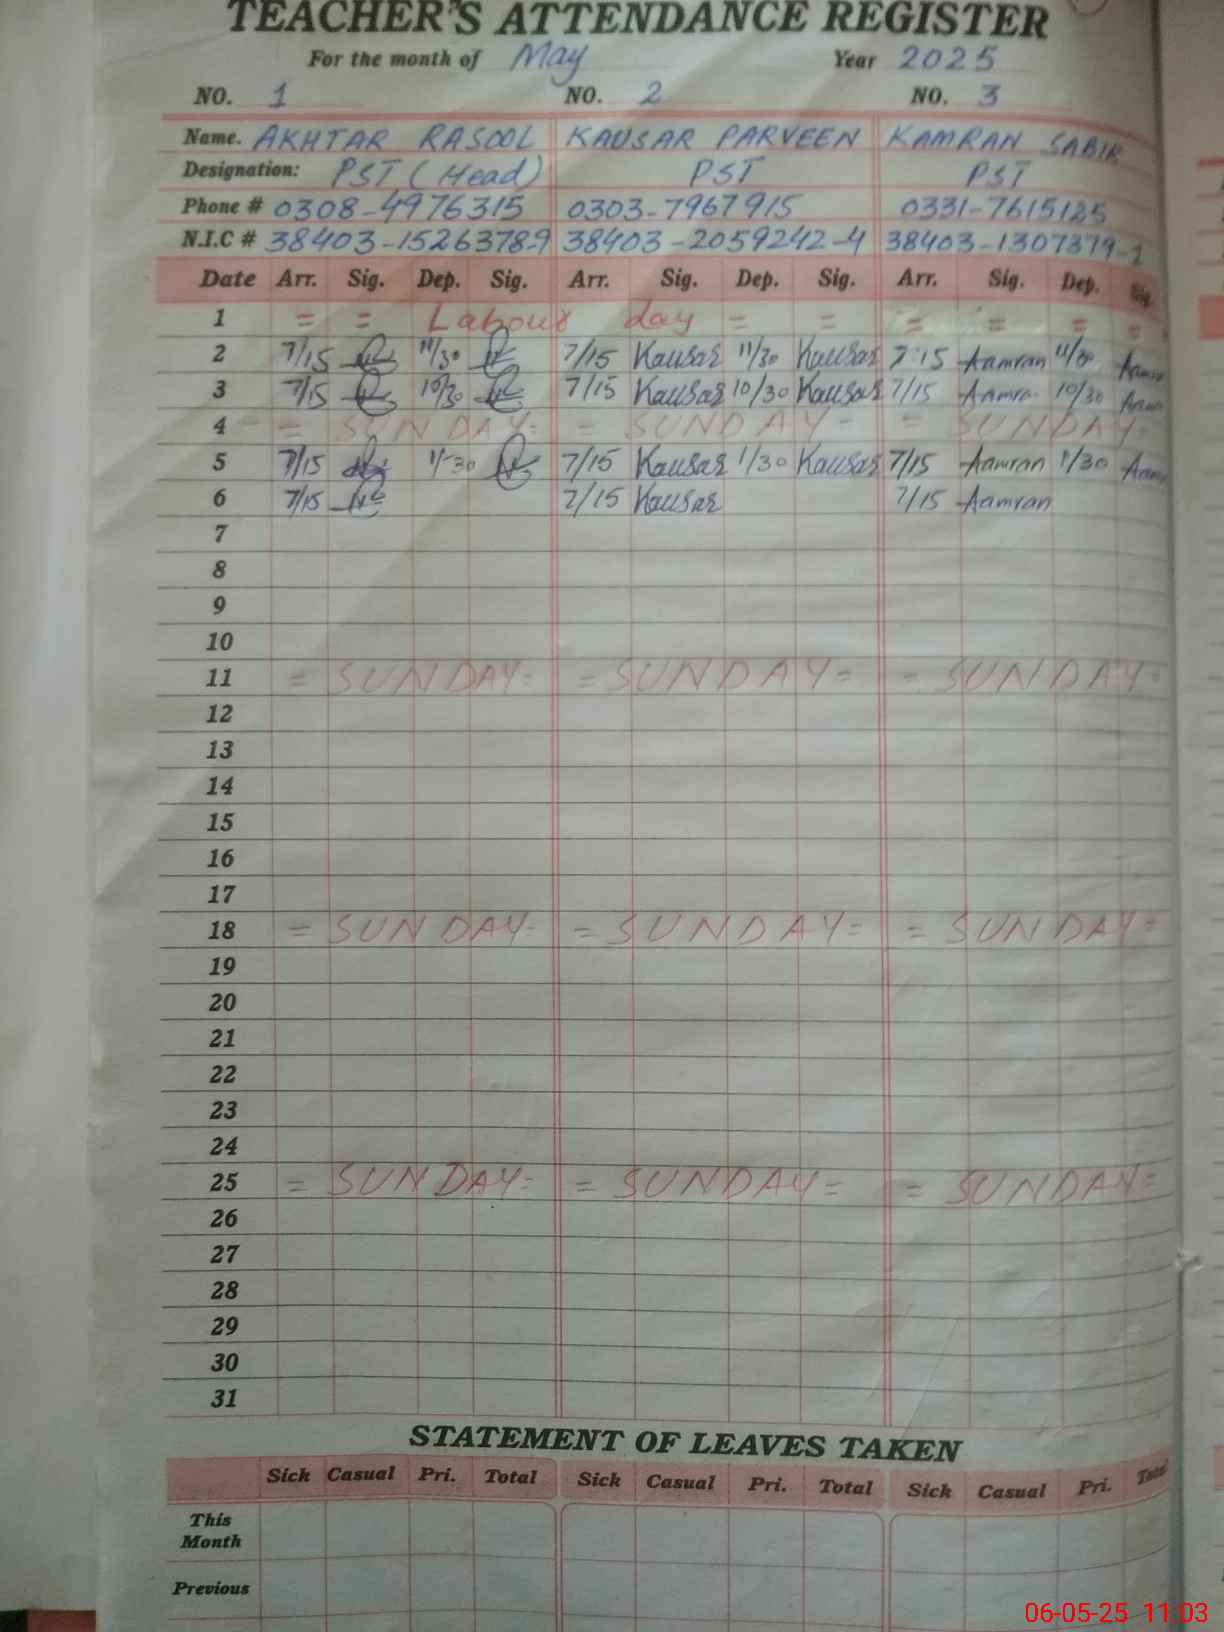 TEACHER'S ATTENDANCE REGISTER
For the month of May Year 2025
NO. 1 NO. 2 NO. 3
Name. AKHTAR RASOOL KAUSAR PARVEEN KAMRAN SABIR
Designation: PST (Head) PST PST
Phone # 0308-4976315 0303-7967915 0331-7615125
N.I.C # 38403-1526378-9 38403-2059242-4 38403-1307379-1
Date Arr. Sig. Dep. Sig. Arr. Sig. Dep. Sig. Arr. Sig. Dep. Sig.
1 = = Labour day = = = = = =
2 7/15 11/30 7/15 Kausar 11/30 Kausar 7:15 Aamran 11/30
3 7/15 10/30 7/15 Kausar 10/30 Kausar 7/15 Aamran 10/30
4 = SUNDAY = = SUNDAY - = SUNDAY -
5 7/15 1/30 7/15 Kausar 1/30 Kausar 7/15 Aamran 1/30
6 7/15 7/15 Kausar 7/15 Aamran
7
8
9
10
11 = SUNDAY = = SUNDAY = = SUNDAY -
12
13
14
15
16
17
18 = SUNDAY = = SUNDAY = = SUNDAY =
19
20
21
22
23
24
25 = SUNDAY = = SUNDAY = = SUNDAY =
26
27
28
29
30
31
STATEMENT OF LEAVES TAKEN
Sick Casual Pri. Total Sick Casual Pri. Total Sick Casual Pri. Total
This
Month
Previous
06-05-25 11:03